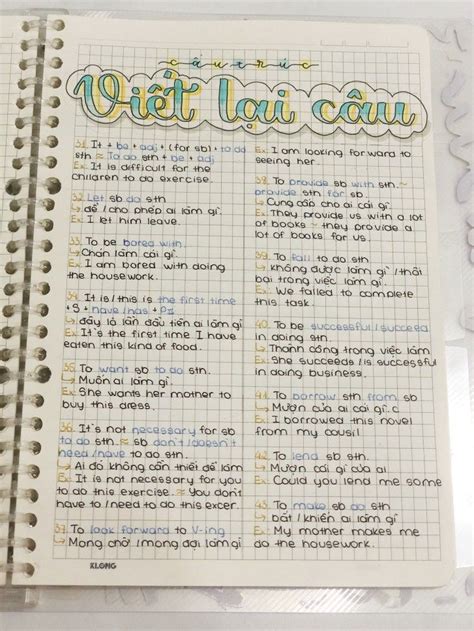 cấu trúc
Viết lại câu
31. It + be + adj + (for sb) + to do
sth ≈ To do sth + be + adj
Ex: It is difficult for the
children to do exercise.
32. Let sb do sth
↳ để / cho phép ai làm gì.
Ex: I let him leave.
33. To be bored with.
↳ Chán làm cái gì.
Ex: I am bored with doing
the housework.
34. It is / this is the first time
+ S + have / has + PII
↳ đây là lần đầu tiên ai làm gì
Ex: It's the first time I have
eaten this kind of food.
35. To want sb to do sth
↳ Muốn ai làm gì.
Ex: She wants her mother to
buy this dress.
36. It's not necessary for sb
to do sth ≈ sb don't / doesn't
need / have to do sth.
↳ Ai đó không cần thiết để làm
Ex: It is not necessary for you
to do this exercise ≈ You don't
have to / need to do this exer.
37. To look forward to V-ing
↳ Mong chờ / mong đợi làm gì
Ex: I am looking forward to
seeing her.
38. To provide sb with sth. ~
provide sth for sb
↳ Cung cấp cho ai cái gì.
Ex: They provide us with a lot
of books ~ they provide a
lot of books for us.
39. To fail to do sth
↳ không được làm gì / thất
bại trong việc làm gì.
Ex: We failed to complete
this task.
40. To be successful / succeed
in doing sth.
↳ Thành công trong việc làm
Ex: She succeeds / is successful
in doing business.
41. To borrow sth from sb
↳ Mượn của ai cái gì.
Ex: I borrowed this novel
from my cousil
42. To lend sb sth.
↳ Mượn cái gì của ai
Ex: Could you lend me some
43. To make sb do sth
↳ bắt / khiến ai làm gì
Ex: My mother makes me
do the housework.
KLONG